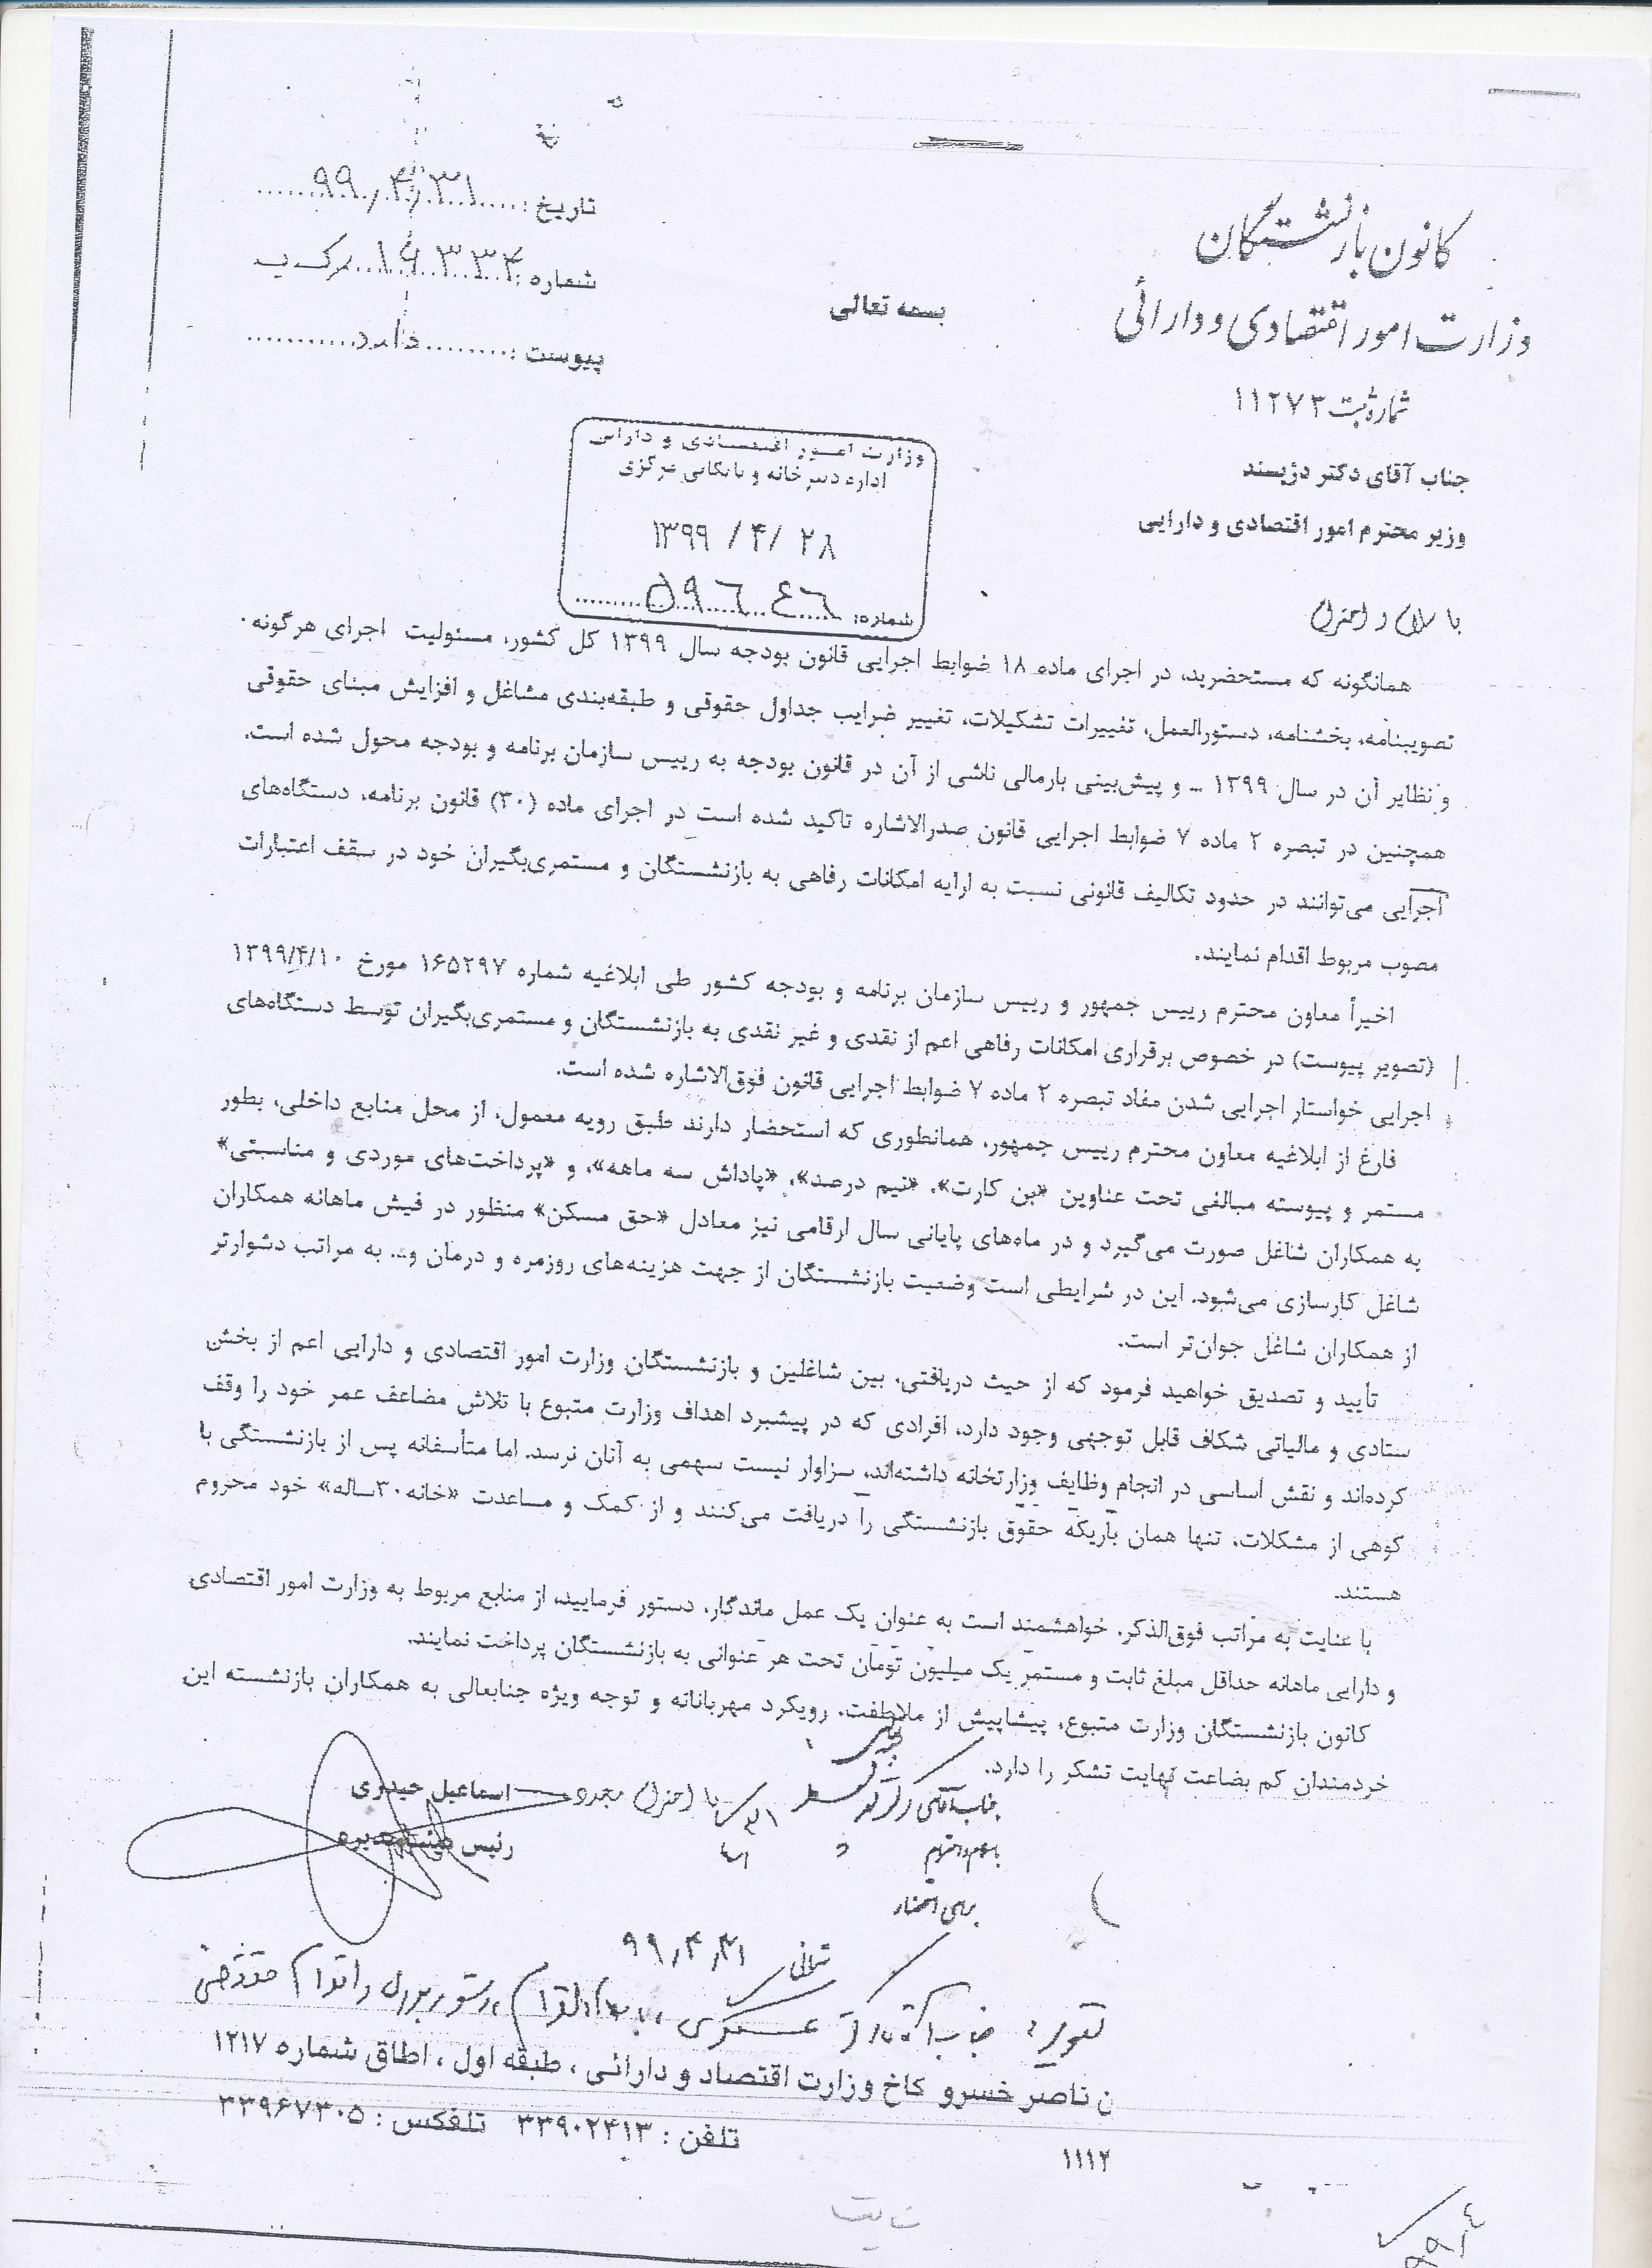 کانون بازنشستگان
وزارت امور اقتصادی و دارائی
شماره ثبت ۱۱۲۷۳
تاریخ : ۹۹/۴/۳۱
شماره : ۱۹۳۳۴
پیوست : دارد
بسمه تعالی
وزارت امور اقتصادی و دارایی
اداره دبیرخانه و بایگانی مرکزی
۱۳۹۹ /۴/ ۲۸
شماره: ۵۹۶۴۶
جناب آقای دکتر دژپسند
وزیر محترم امور اقتصادی و دارایی
با سلام و احترام
همانگونه که مستحضرید، در اجرای ماده ۱۸ ضوابط اجرایی قانون بودجه سال ۱۳۹۹ کل کشور، مسئولیت اجرای هرگونه
تصویبنامه، بخشنامه، دستورالعمل، تغییرات تشکیلات، تغییر ضرایب جداول حقوقی و طبقه‌بندی مشاغل و افزایش مبنای حقوقی
و نظایر آن در سال ۱۳۹۹ – و پیش‌بینی بارمالی ناشی از آن در قانون بودجه به رییس سازمان برنامه و بودجه محول شده است.
همچنین در تبصره ۲ ماده ۷ ضوابط اجرایی قانون صدرالاشاره تاکید شده است در اجرای ماده (۳۰) قانون برنامه، دستگاه‌های
اجرایی می‌توانند در حدود تکالیف قانونی نسبت به ارایه امکانات رفاهی به بازنشستگان و مستمری‌بگیران خود در سقف اعتبارات
مصوب مربوط اقدام نمایند.
اخیراً معاون محترم رییس جمهور و رییس سازمان برنامه و بودجه کشور طی ابلاغیه شماره ۱۶۵۲۹۷ مورخ ۱۳۹۹/۴/۱۰
(تصویر پیوست) در خصوص برقراری امکانات رفاهی اعم از نقدی و غیر نقدی به بازنشستگان و مستمری‌بگیران توسط دستگاه‌های
اجرایی خواستار اجرایی شدن مفاد تبصره ۲ ماده ۷ ضوابط اجرایی قانون فوق‌الاشاره شده است.
فارغ از ابلاغیه معاون محترم رییس جمهور، همانطوری که استحضار دارند طبق رویه معمول، از محل منابع داخلی، بطور
مستمر و پیوسته مبالغی تحت عناوین «بن کارت»، «نیم درصد»، «پاداش سه ماهه»، و «پرداخت‌های موردی و مناسبتی»
به همکاران شاغل صورت می‌گیرد و در ماه‌های پایانی سال ارقامی نیز معادل «حق مسکن» منظور در فیش ماهانه همکاران
شاغل کارسازی می‌شود. این در شرایطی است وضعیت بازنشستگان از جهت هزینه‌های روزمره و درمان و... به مراتب دشوارتر
از همکاران شاغل جوان‌تر است.
تأیید و تصدیق خواهید فرمود که از حیث دریافتی، بین شاغلین و بازنشستگان وزارت امور اقتصادی و دارایی اعم از بخش
ستادی و مالیاتی شکاف قابل توجهی وجود دارد، افرادی که در پیشبرد اهداف وزارت متبوع با تلاش مضاعف عمر خود را وقف
کرده‌اند و نقش اساسی در انجام وظایف وزارتخانه داشته‌اند، سزاوار نیست سهمی به آنان نرسد. اما متأسفانه پس از بازنشستگی با
کوهی از مشکلات، تنها همان باریکه حقوق بازنشستگی را دریافت می‌کنند و از کمک و مساعدت «خانه ۳۰ساله» خود محروم
هستند.
با عنایت به مراتب فوق‌الذکر، خواهشمند است به عنوان یک عمل ماندگار، دستور فرمایید، از منابع مربوط به وزارت امور اقتصادی
و دارایی ماهانه حداقل مبلغ ثابت و مستمر یک میلیون تومان تحت هر عنوانی به بازنشستگان پرداخت نمایند.
کانون بازنشستگان وزارت متبوع، پیشاپیش از ملاطفت، رویکرد مهربانانه و توجه ویژه جنابعالی به همکاران بازنشسته این
خردمندان کم بضاعت نهایت تشکر را دارد.
با احترام مجدد
اسماعیل حیدری
رئیس هیئت مدیره
جناب آقای دکتر
با سلام و احترام
برای استحضار
۹۹/۴/۳۱
جناب آقای دکتر عسکری
ن ناصر خسرو کاخ وزارت اقتصاد و دارائی ، طبقه اول ، اطاق شماره ۱۲۱۷
تلفن : ۳۳۹۰۲۴۱۳ تلفکس : ۳۳۹۶۷۳۰۵
۱۱۱۴
سایت